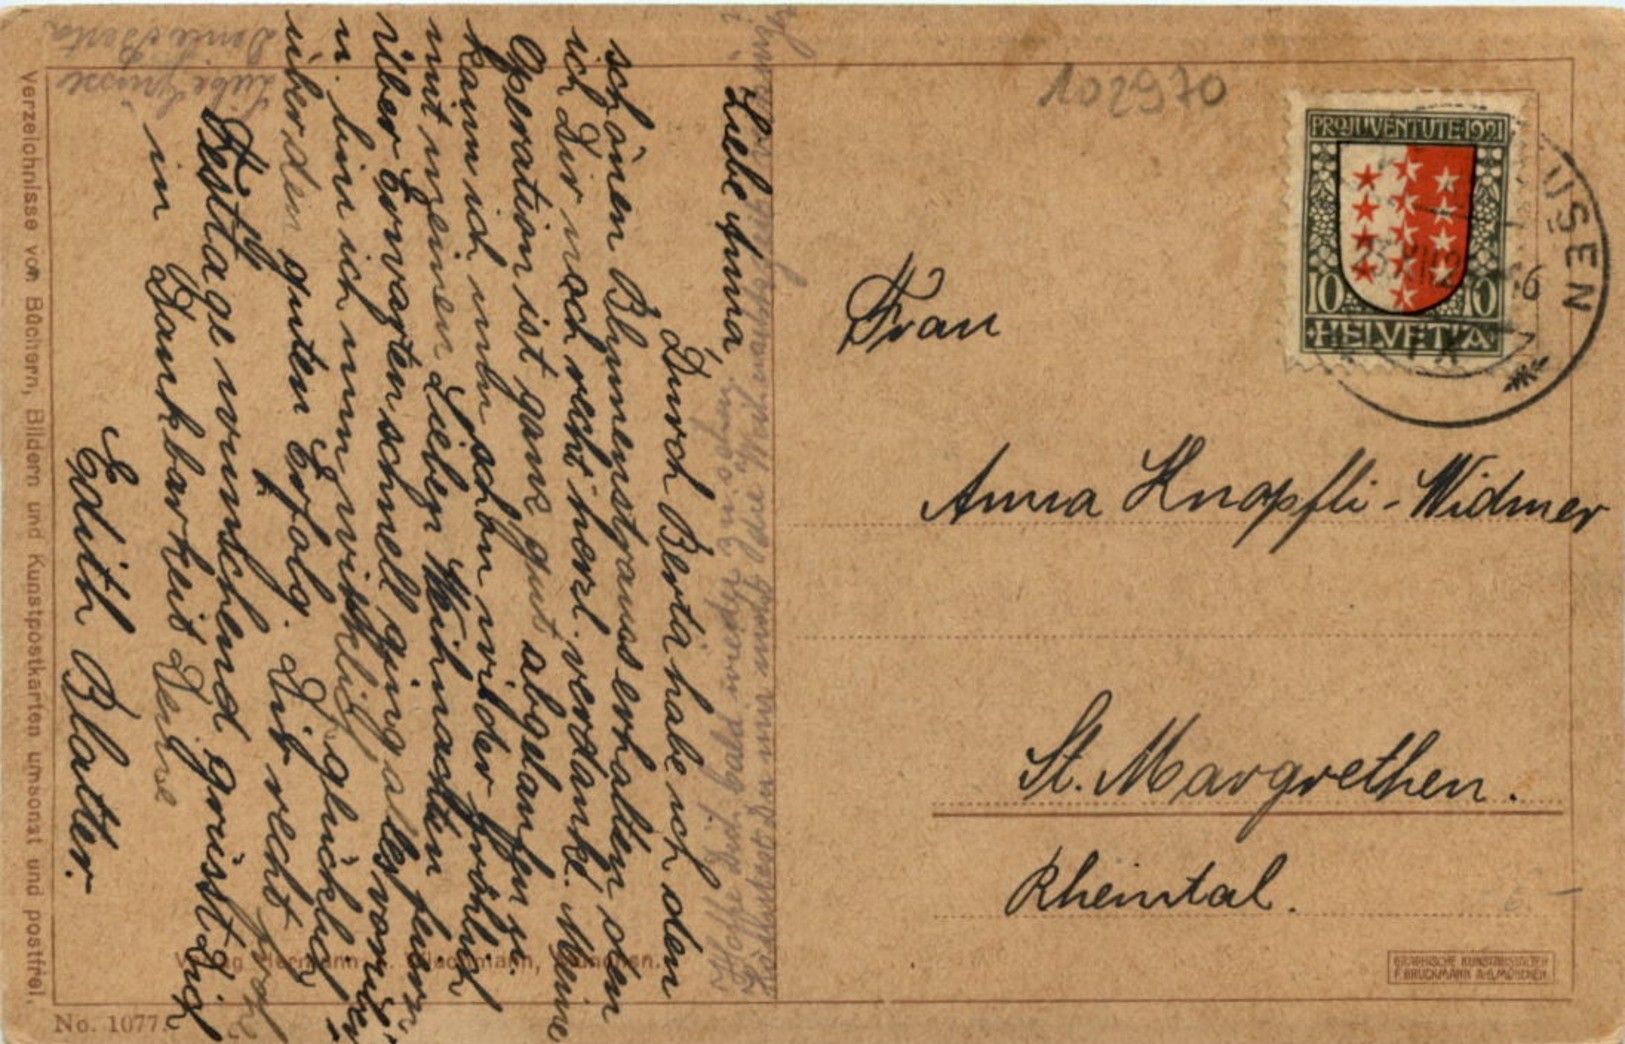 Liebe Anna
Durch Berta habe ich den
schönen Blumenstrauss erhalten den
ich Dir noch recht herzl. verdanke. Meine
Operation ist ganz gut abgelaufen u.
kann ich nun schon wieder fröhlich
mit meinen Lieben Weihnachten feiern
über Erwarten schnell ging alles vorüber
u. bin ich nun wirklich glücklich
über den guten Erfolg. Dir recht frohe
Festtage wünschend grüsst Dich
in Dankbarkeit Deine
Edith Blatter.
Hoffe Dich bald wieder
Liebe Grüsse
Deine Berta
102970
PRO JUVENTUTE 1921
10 10
HELVETIA
USEN
Frau
Anna Knöpfli-Widmer
St. Margrethen.
Rheintal.
Verzeichnisse von Büchern, Bildern und Kunstpostkarten umsonst und postfrei.
No. 1077.
GRAPHISCHE KUNSTANSTALTEN
F. BRUCKMANN A.G. MÜNCHEN